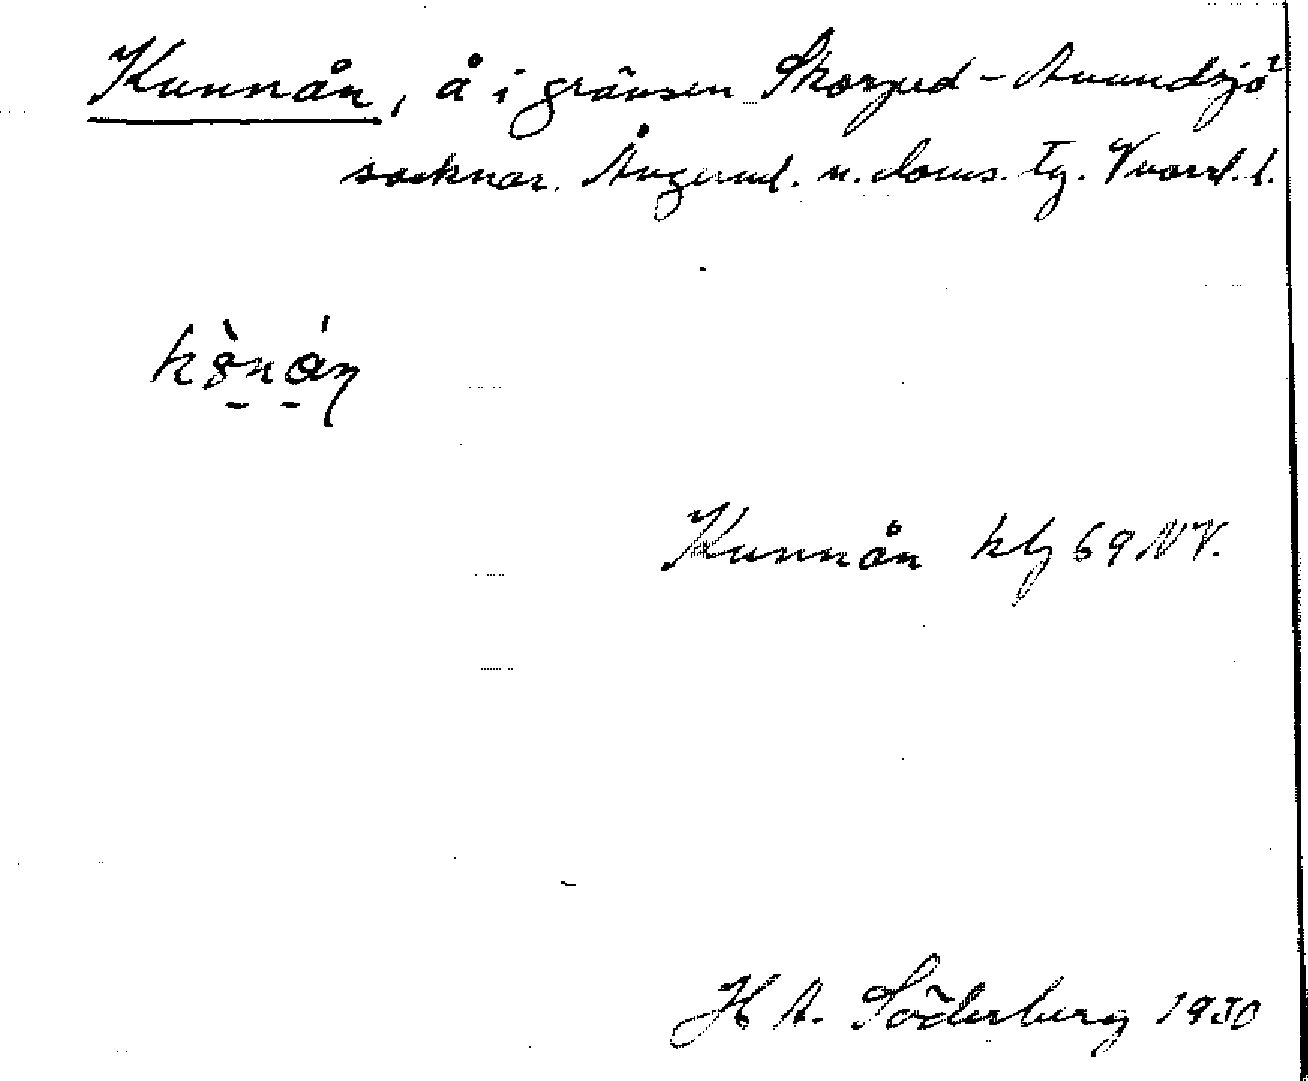 Kunnån, å i gränsen Skorped - Anundsjö
socknar. Ångerml. n. doms. tg. Vnorrl. l.
Kunnån klg 69 NV.
H A. Söderberg 1930